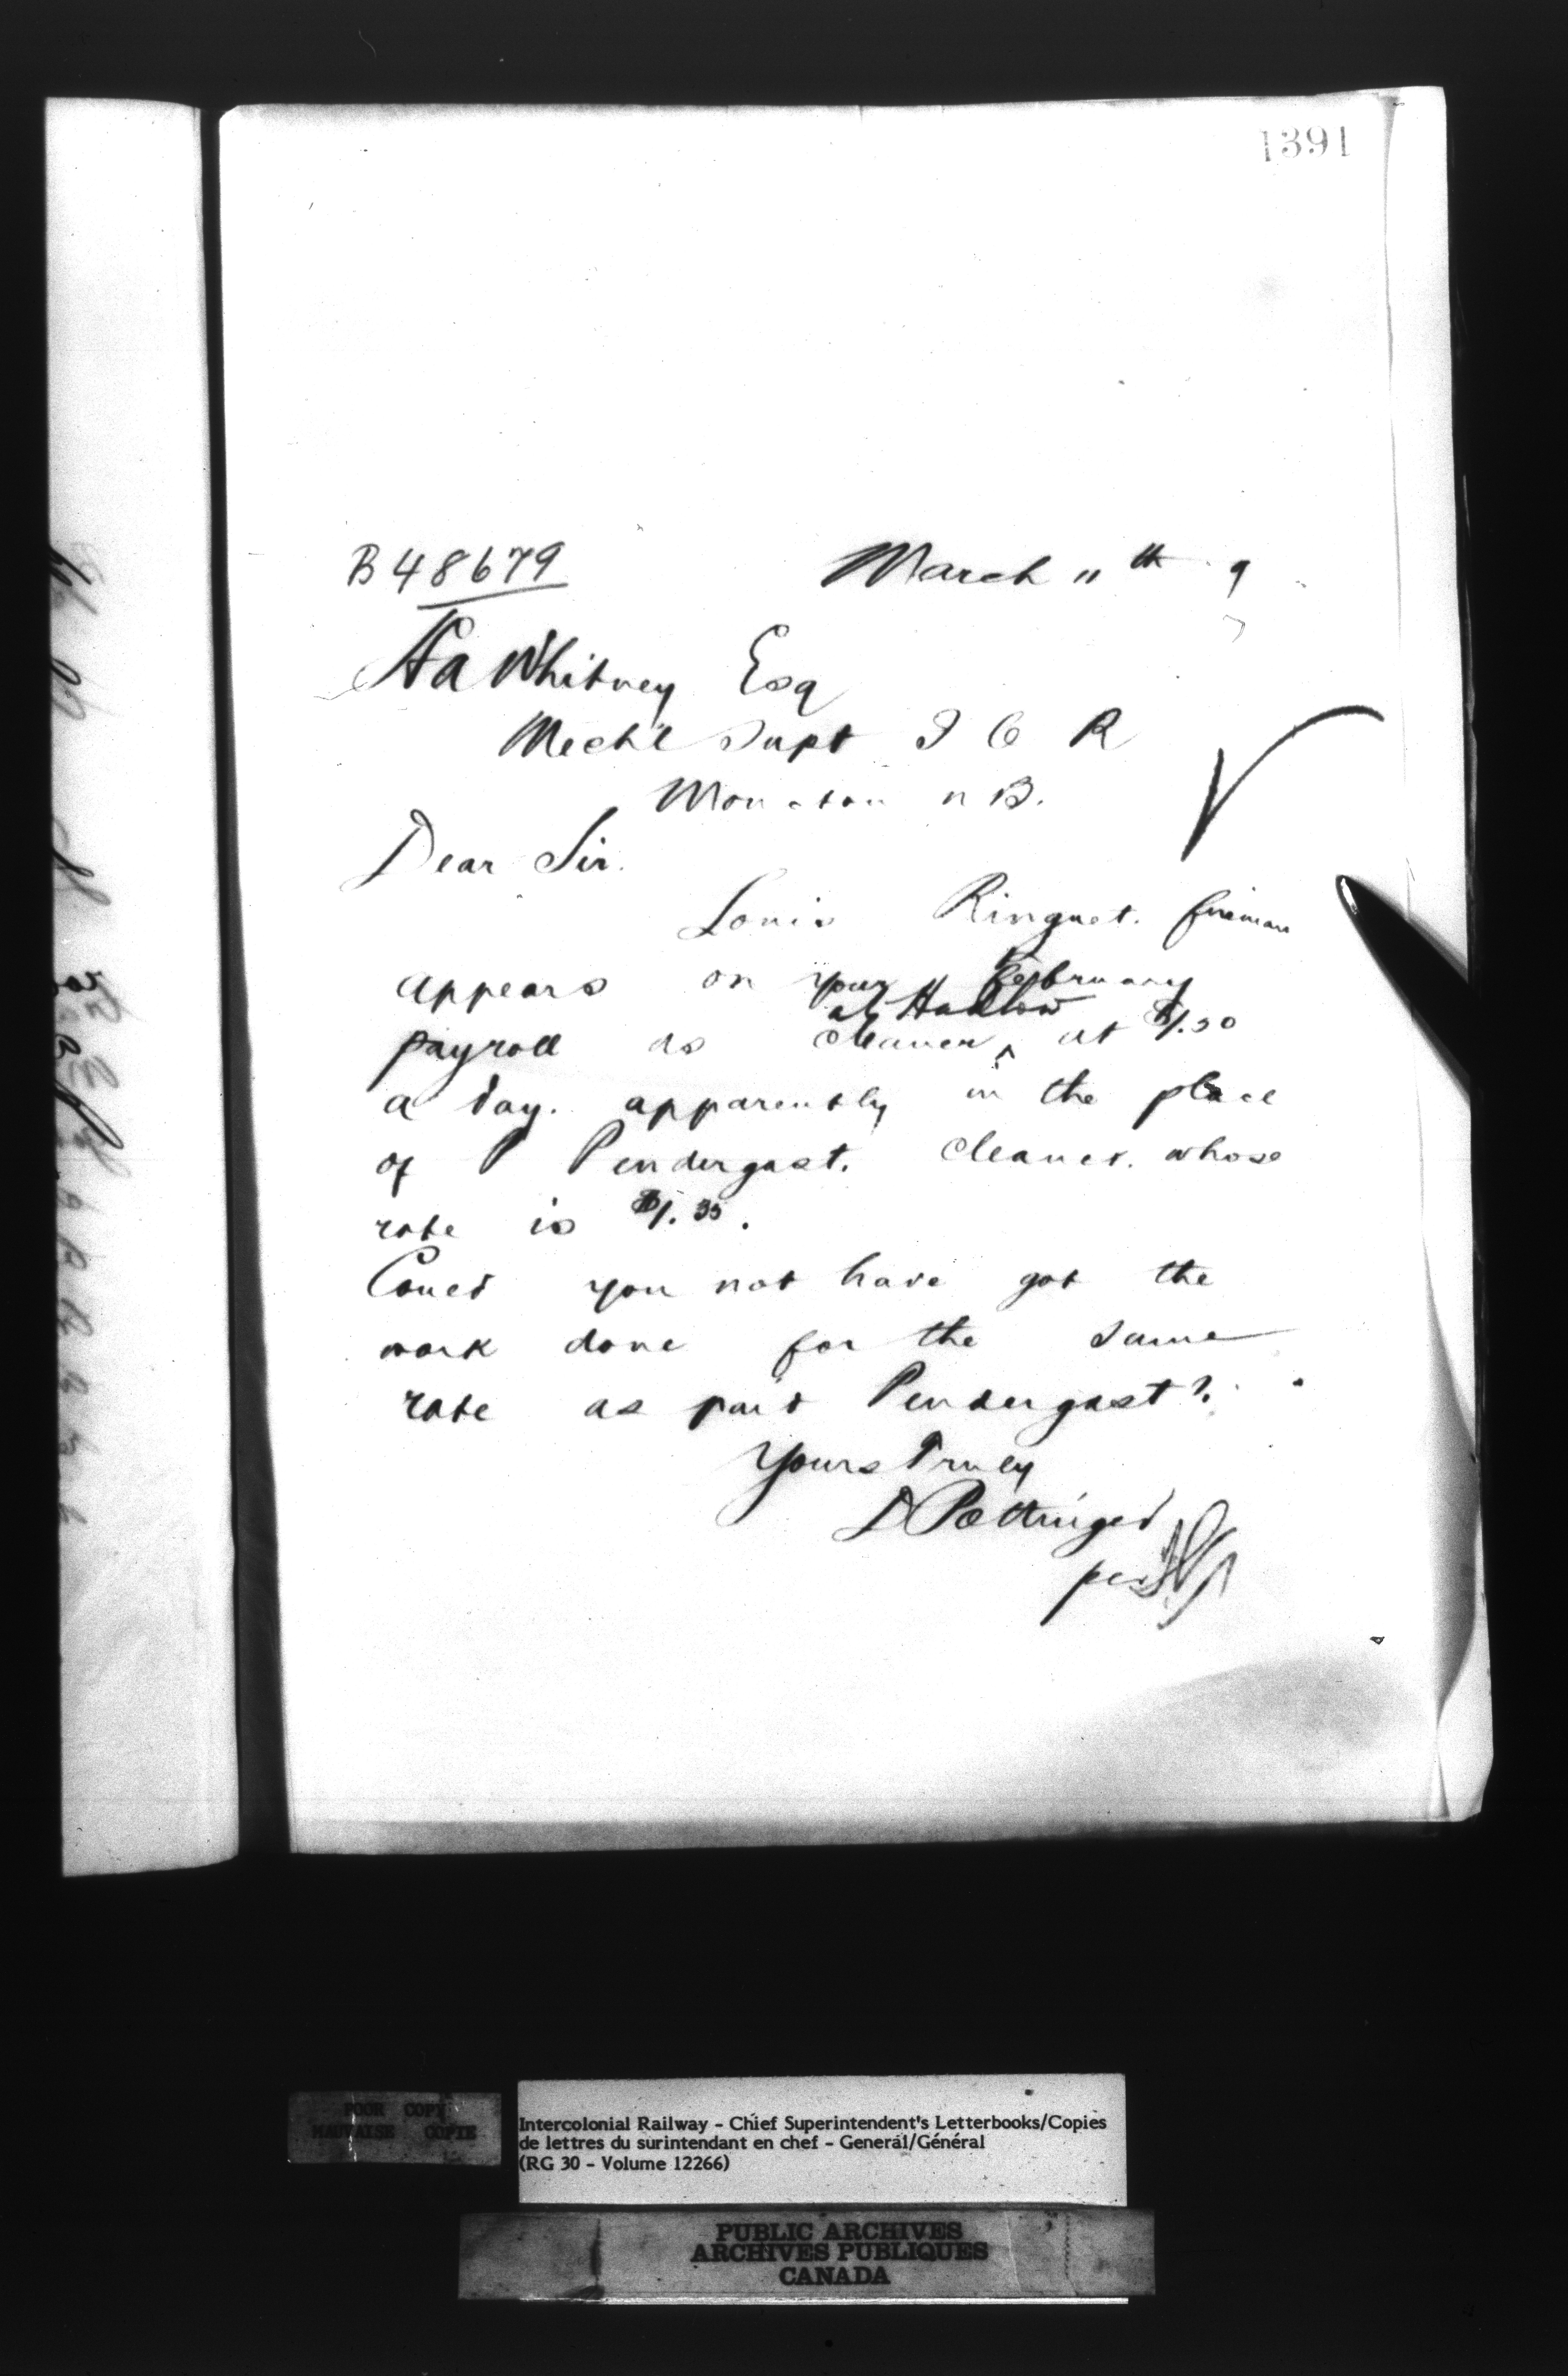 1391
B48679 March 11th 9
Whitney Esq
Mech'l Supt I C R
Moncton N B.
Dear Sir.
Louis Ringuet. fireman
appears on your February
at Hadlow
payroll as cleaner ^ at $1.50
a day. apparently in the place
of P Pendergast. Cleaner. whose
rate is $1.35.
Could you not have got the
work done for the same
rate as paid Pendergast?
Yours Truly
D Pottinger
per
POOR COPY
MAUVAISE COPIE
Intercolonial Railway - Chief Superintendent's Letterbooks/Copies
de lettres du surintendant en chef - General/Général
(RG 30 - Volume 12266)
PUBLIC ARCHIVES
ARCHIVES PUBLIQUES
CANADA